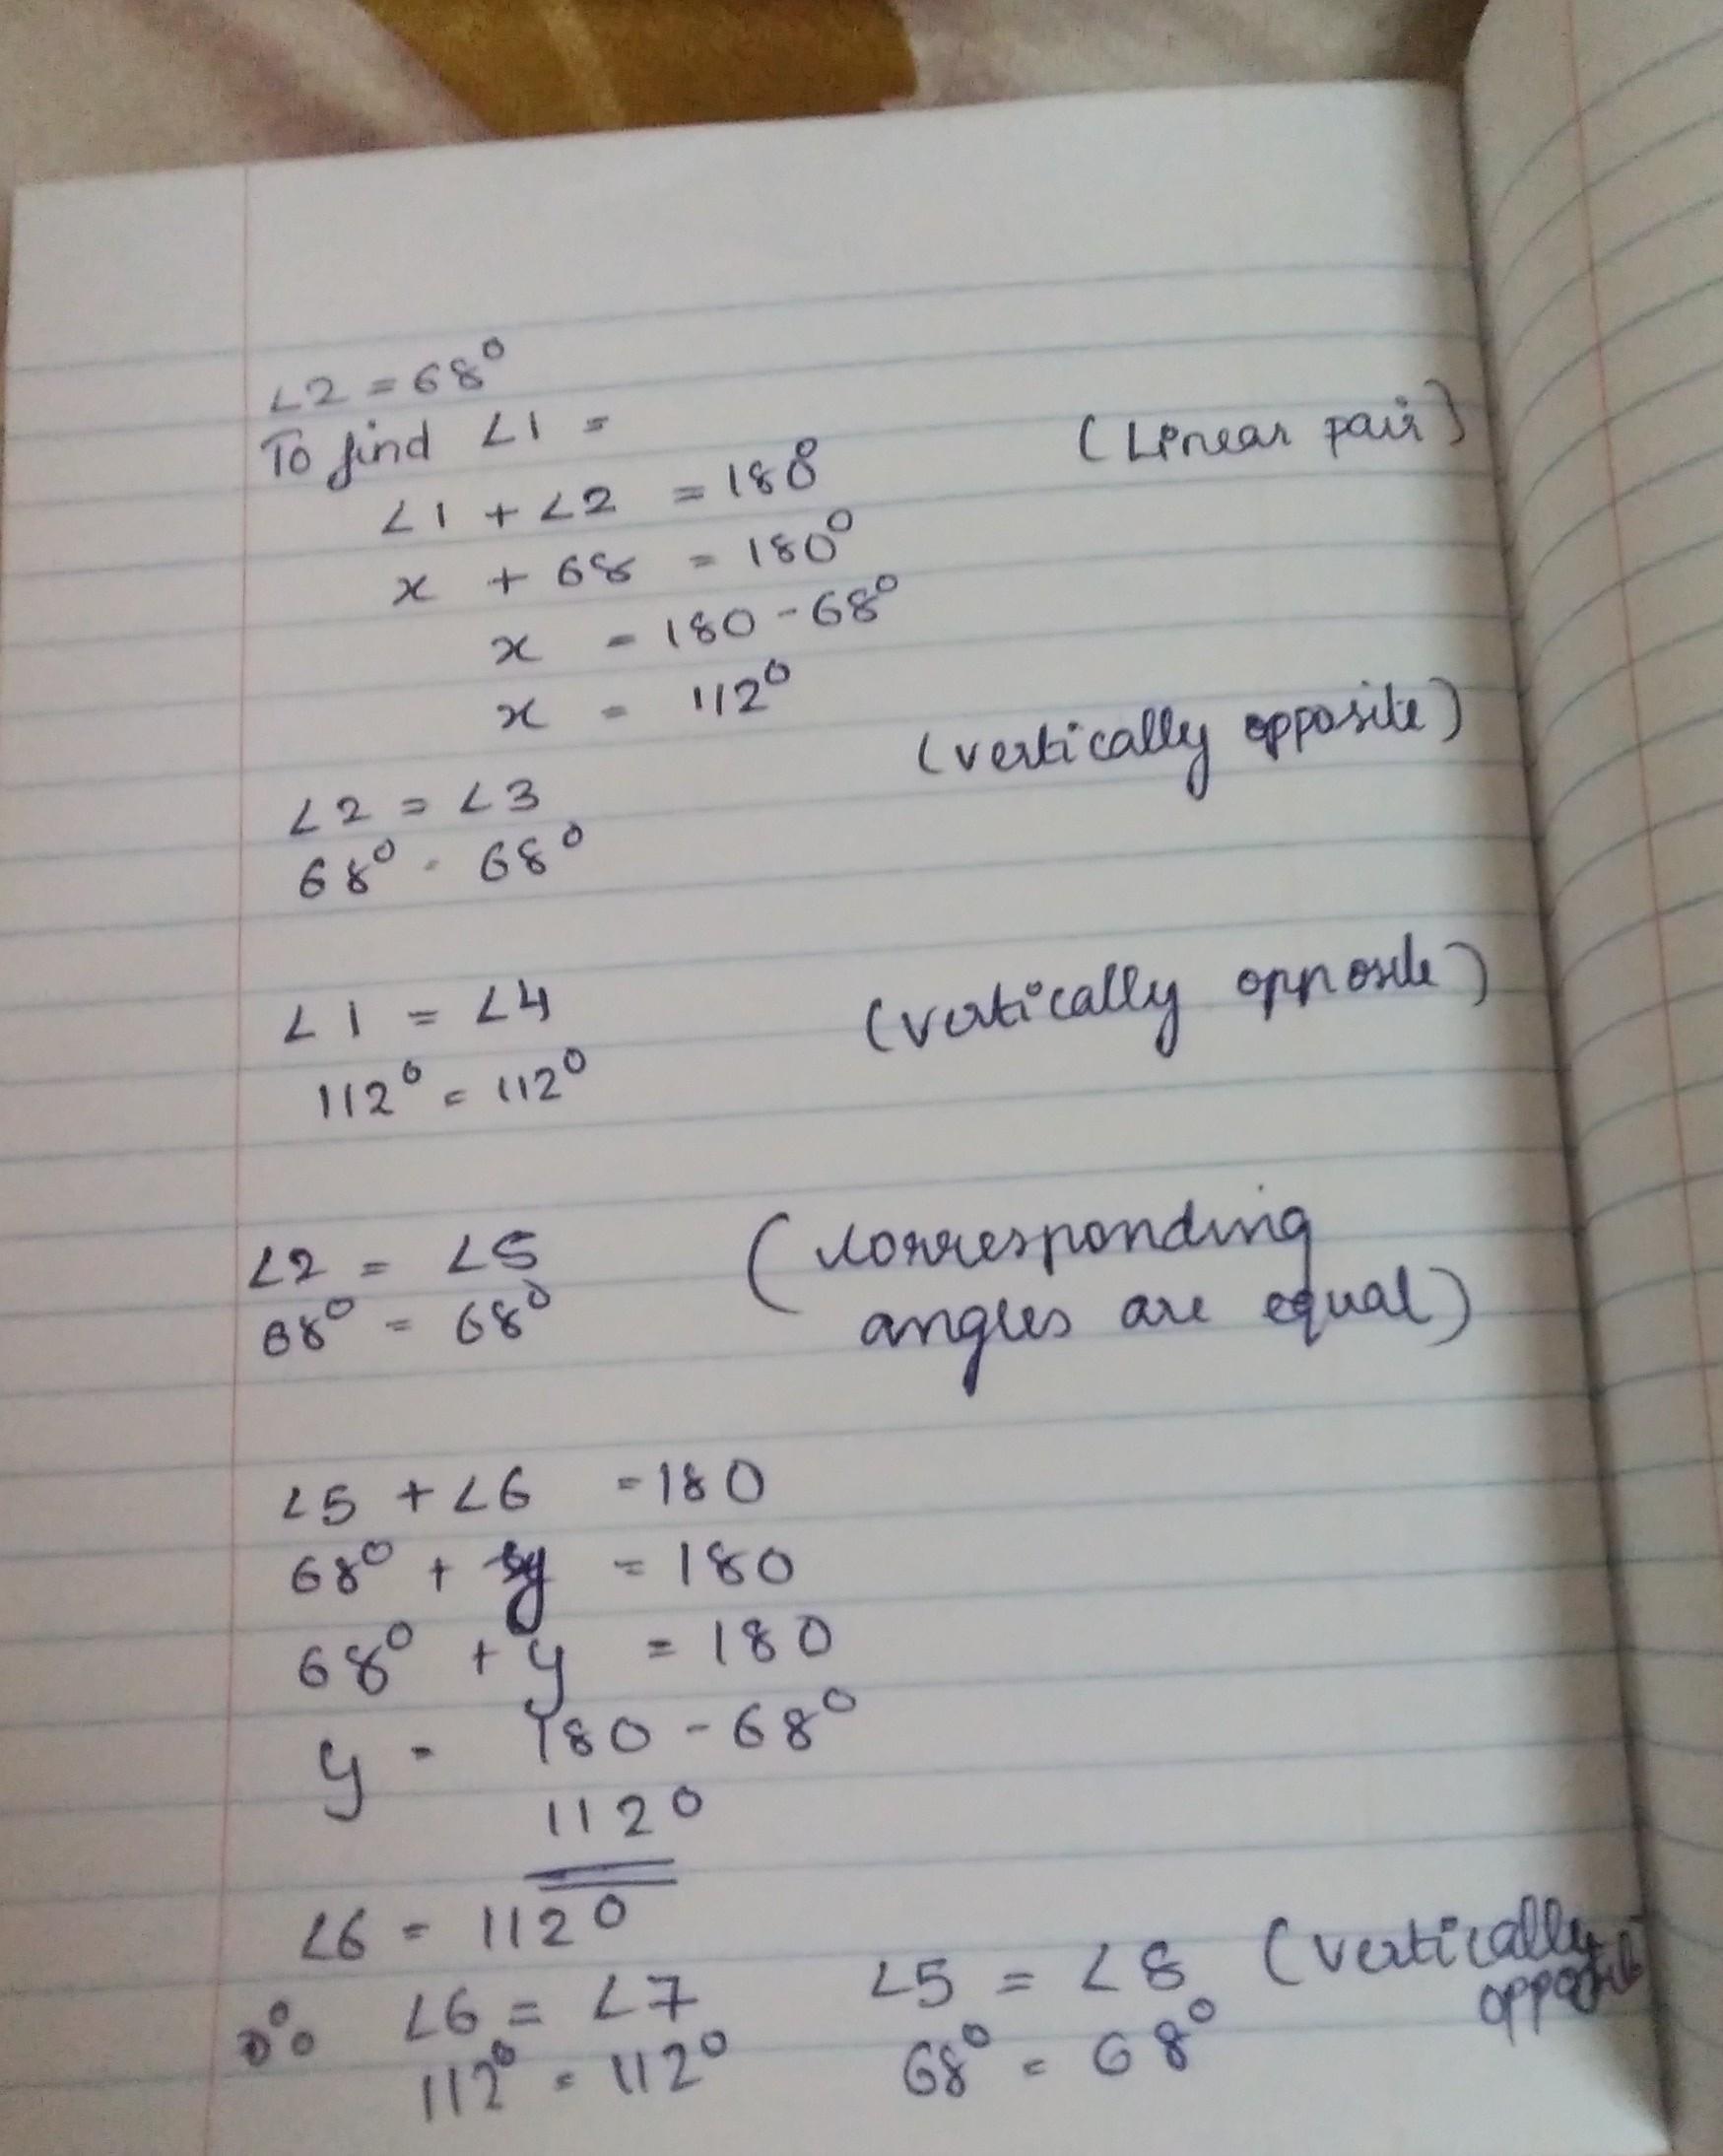 ∠2 = 68°
To find ∠1 =
∠1 + ∠2 = 180° (Linear pair)
x + 68 = 180°
x = 180 - 68°
x = 112°
∠2 = ∠3 (vertically opposite)
68° = 68°
∠1 = ∠4 (vertically opposite)
112° = 112°
∠2 = ∠5 (corresponding
68° = 68° angles are equal)
∠5 + ∠6 = 180
68° + y = 180
68° + y = 180
y = 180 - 68°
112°
∠6 = 112°
∴ ∠6 = ∠7 ∠5 = ∠8 (vertically
opposite
112° = 112° 68° = 68°